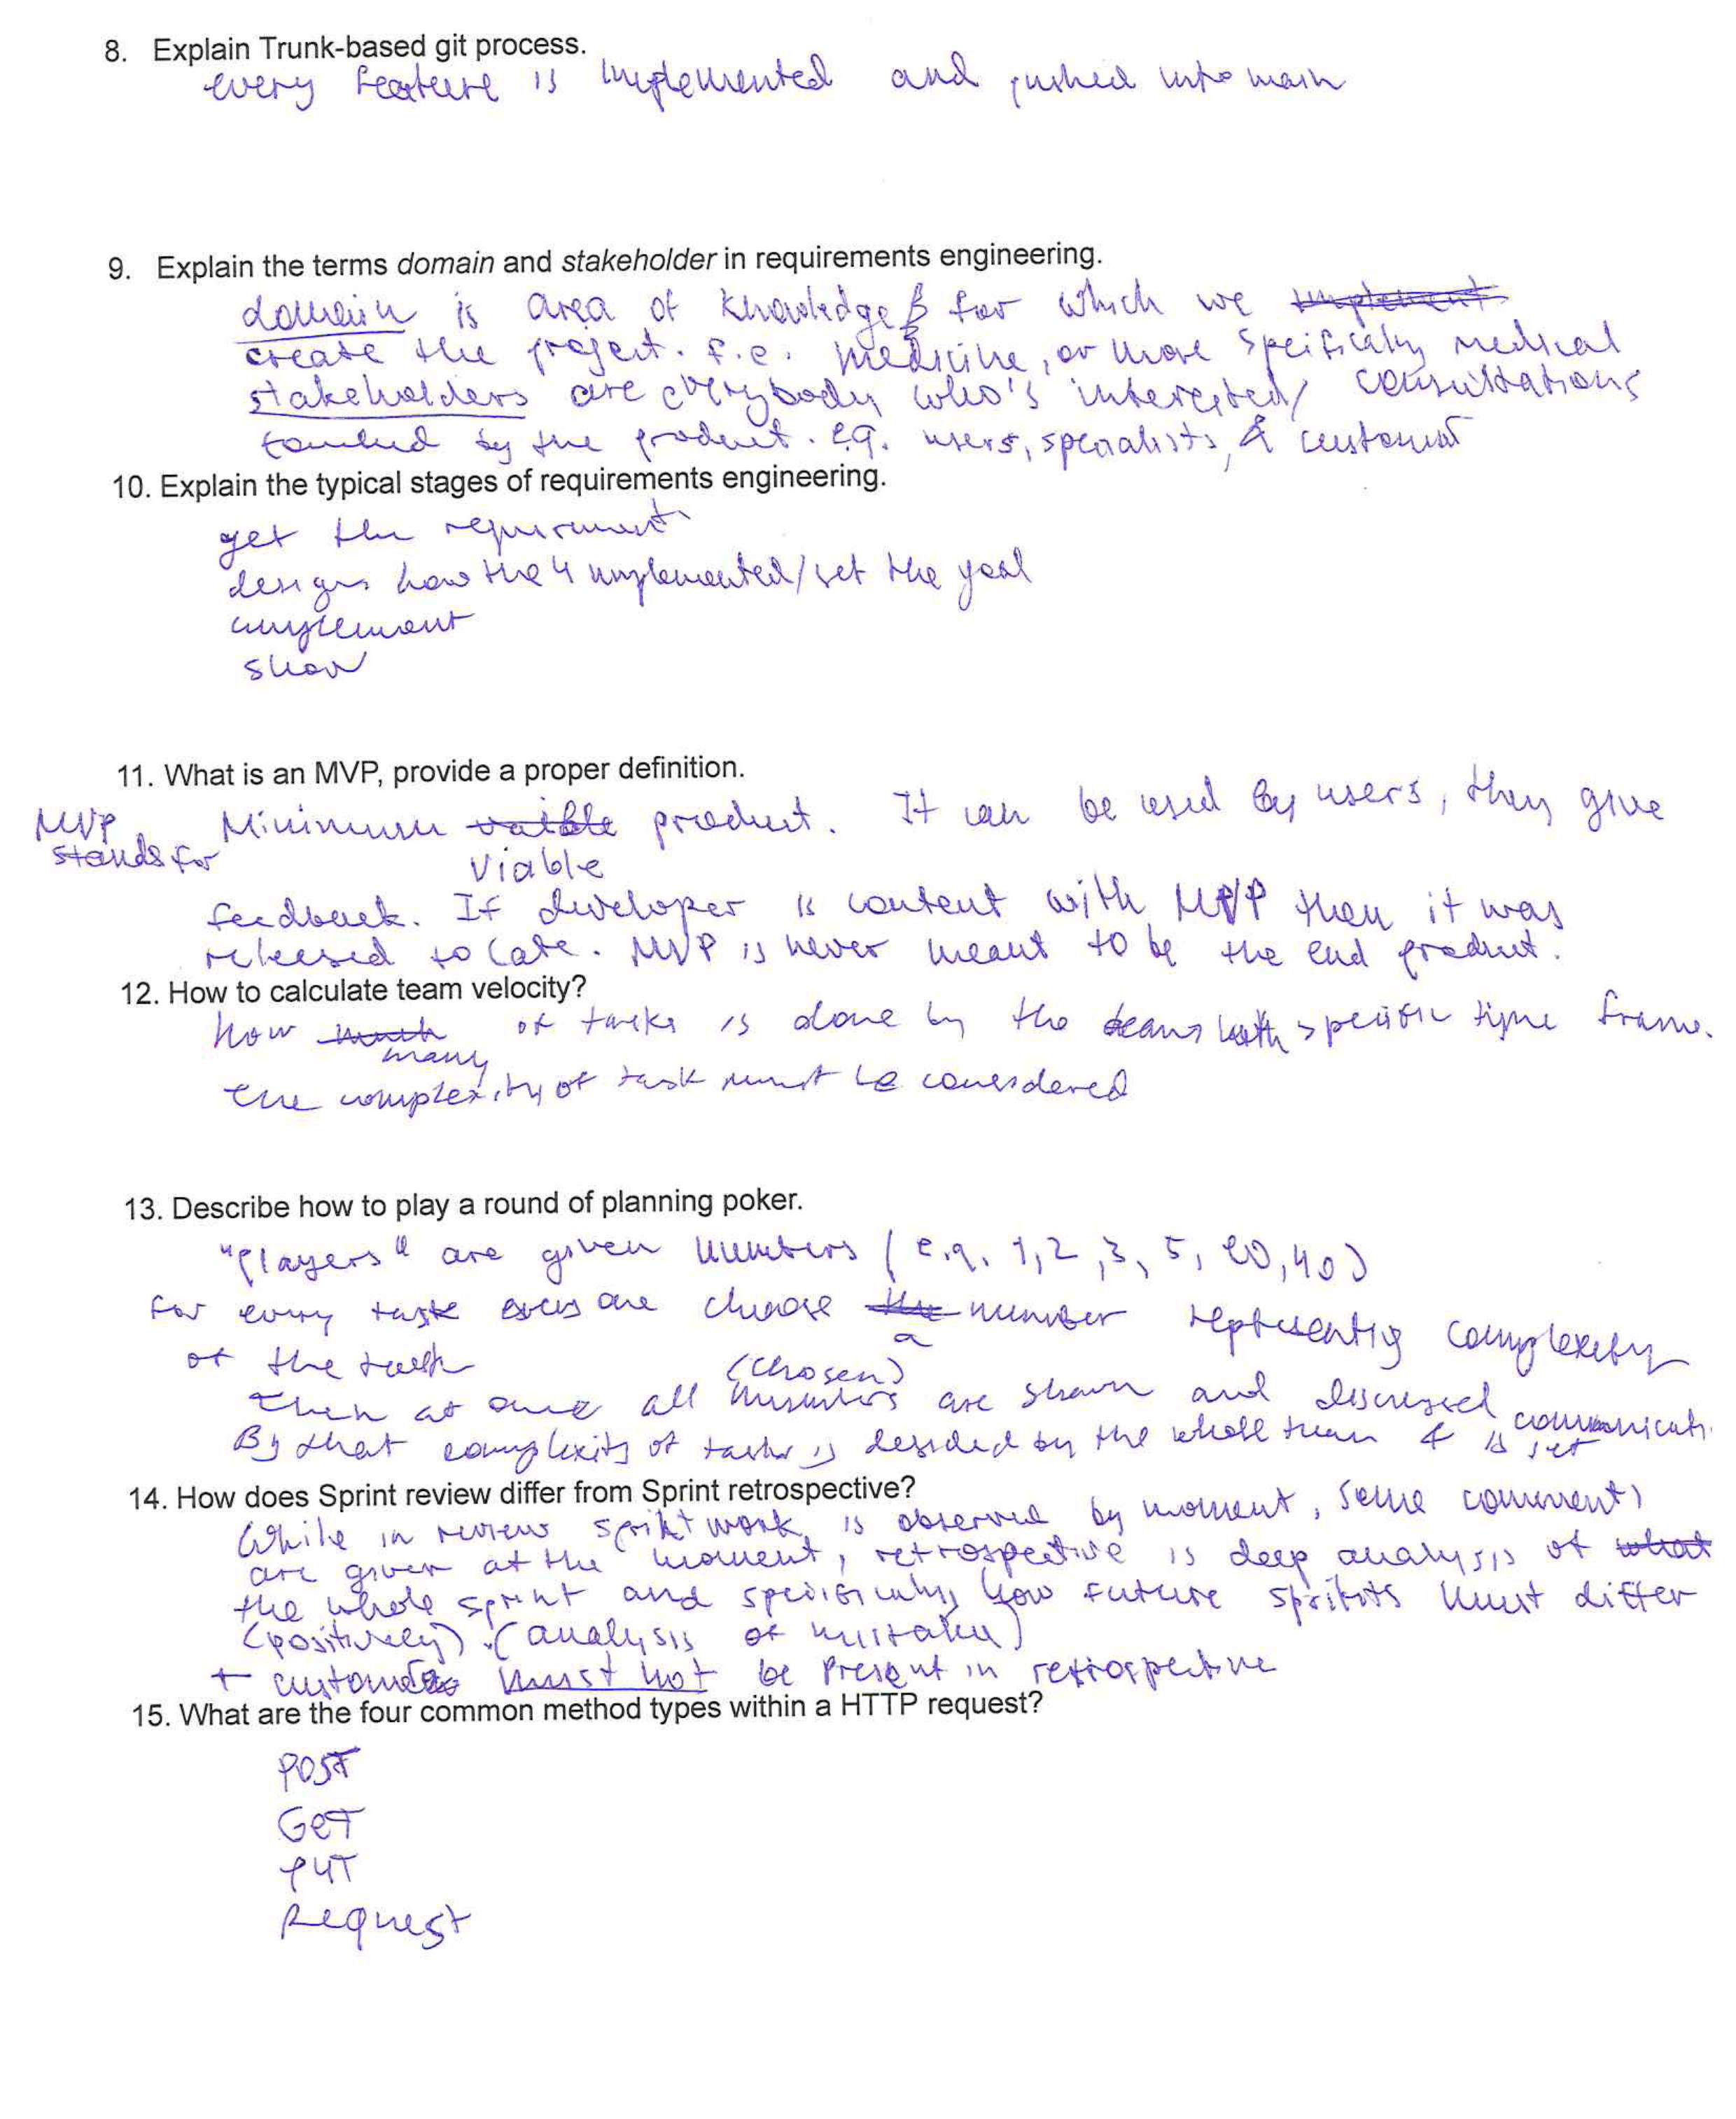 8. Explain Trunk-based git process.
every feature is implemented and pushed into main
9. Explain the terms domain and stakeholder in requirements engineering.
domain is area of knowledge for which we implement
create the project. f.e. medicine, or more specifically medical
stakeholders are everybody who's interested/ consultations
touched by the product. e.g. users, specialists, & customer
10. Explain the typical stages of requirements engineering.
get the requirements
design how the implemented/set the goal
implement
show
11. What is an MVP, provide a proper definition.
MVP stands for Minimum vaible product. It can be used by users, they give
viable
feedback. If developer is content with MVP then it was
released to late. MVP is never meant to be the end product.
12. How to calculate team velocity?
how much of tasks is done by the team with specific time frame.
many
the complexity of task must be considered
13. Describe how to play a round of planning poker.
"players" are given numbers (e.g. 1, 2, 3, 5, 20, 40)
for every task one choose the number representig complexity
a
of the task
(chosen)
then at once all numbers are shown and discussed
By that complexity of tasks is desided by the whole team & communicati. is set
14. How does Sprint review differ from Sprint retrospective?
While in review sprint work is observed by moment, some comments
are given at the moment, retrospective is deep analysis of what
the whole sprint and specifically how future sprints must differ
(positively). (analysis of mistakes)
+ customers must not be present in retrospective
15. What are the four common method types within a HTTP request?
POST
GET
PUT
Request